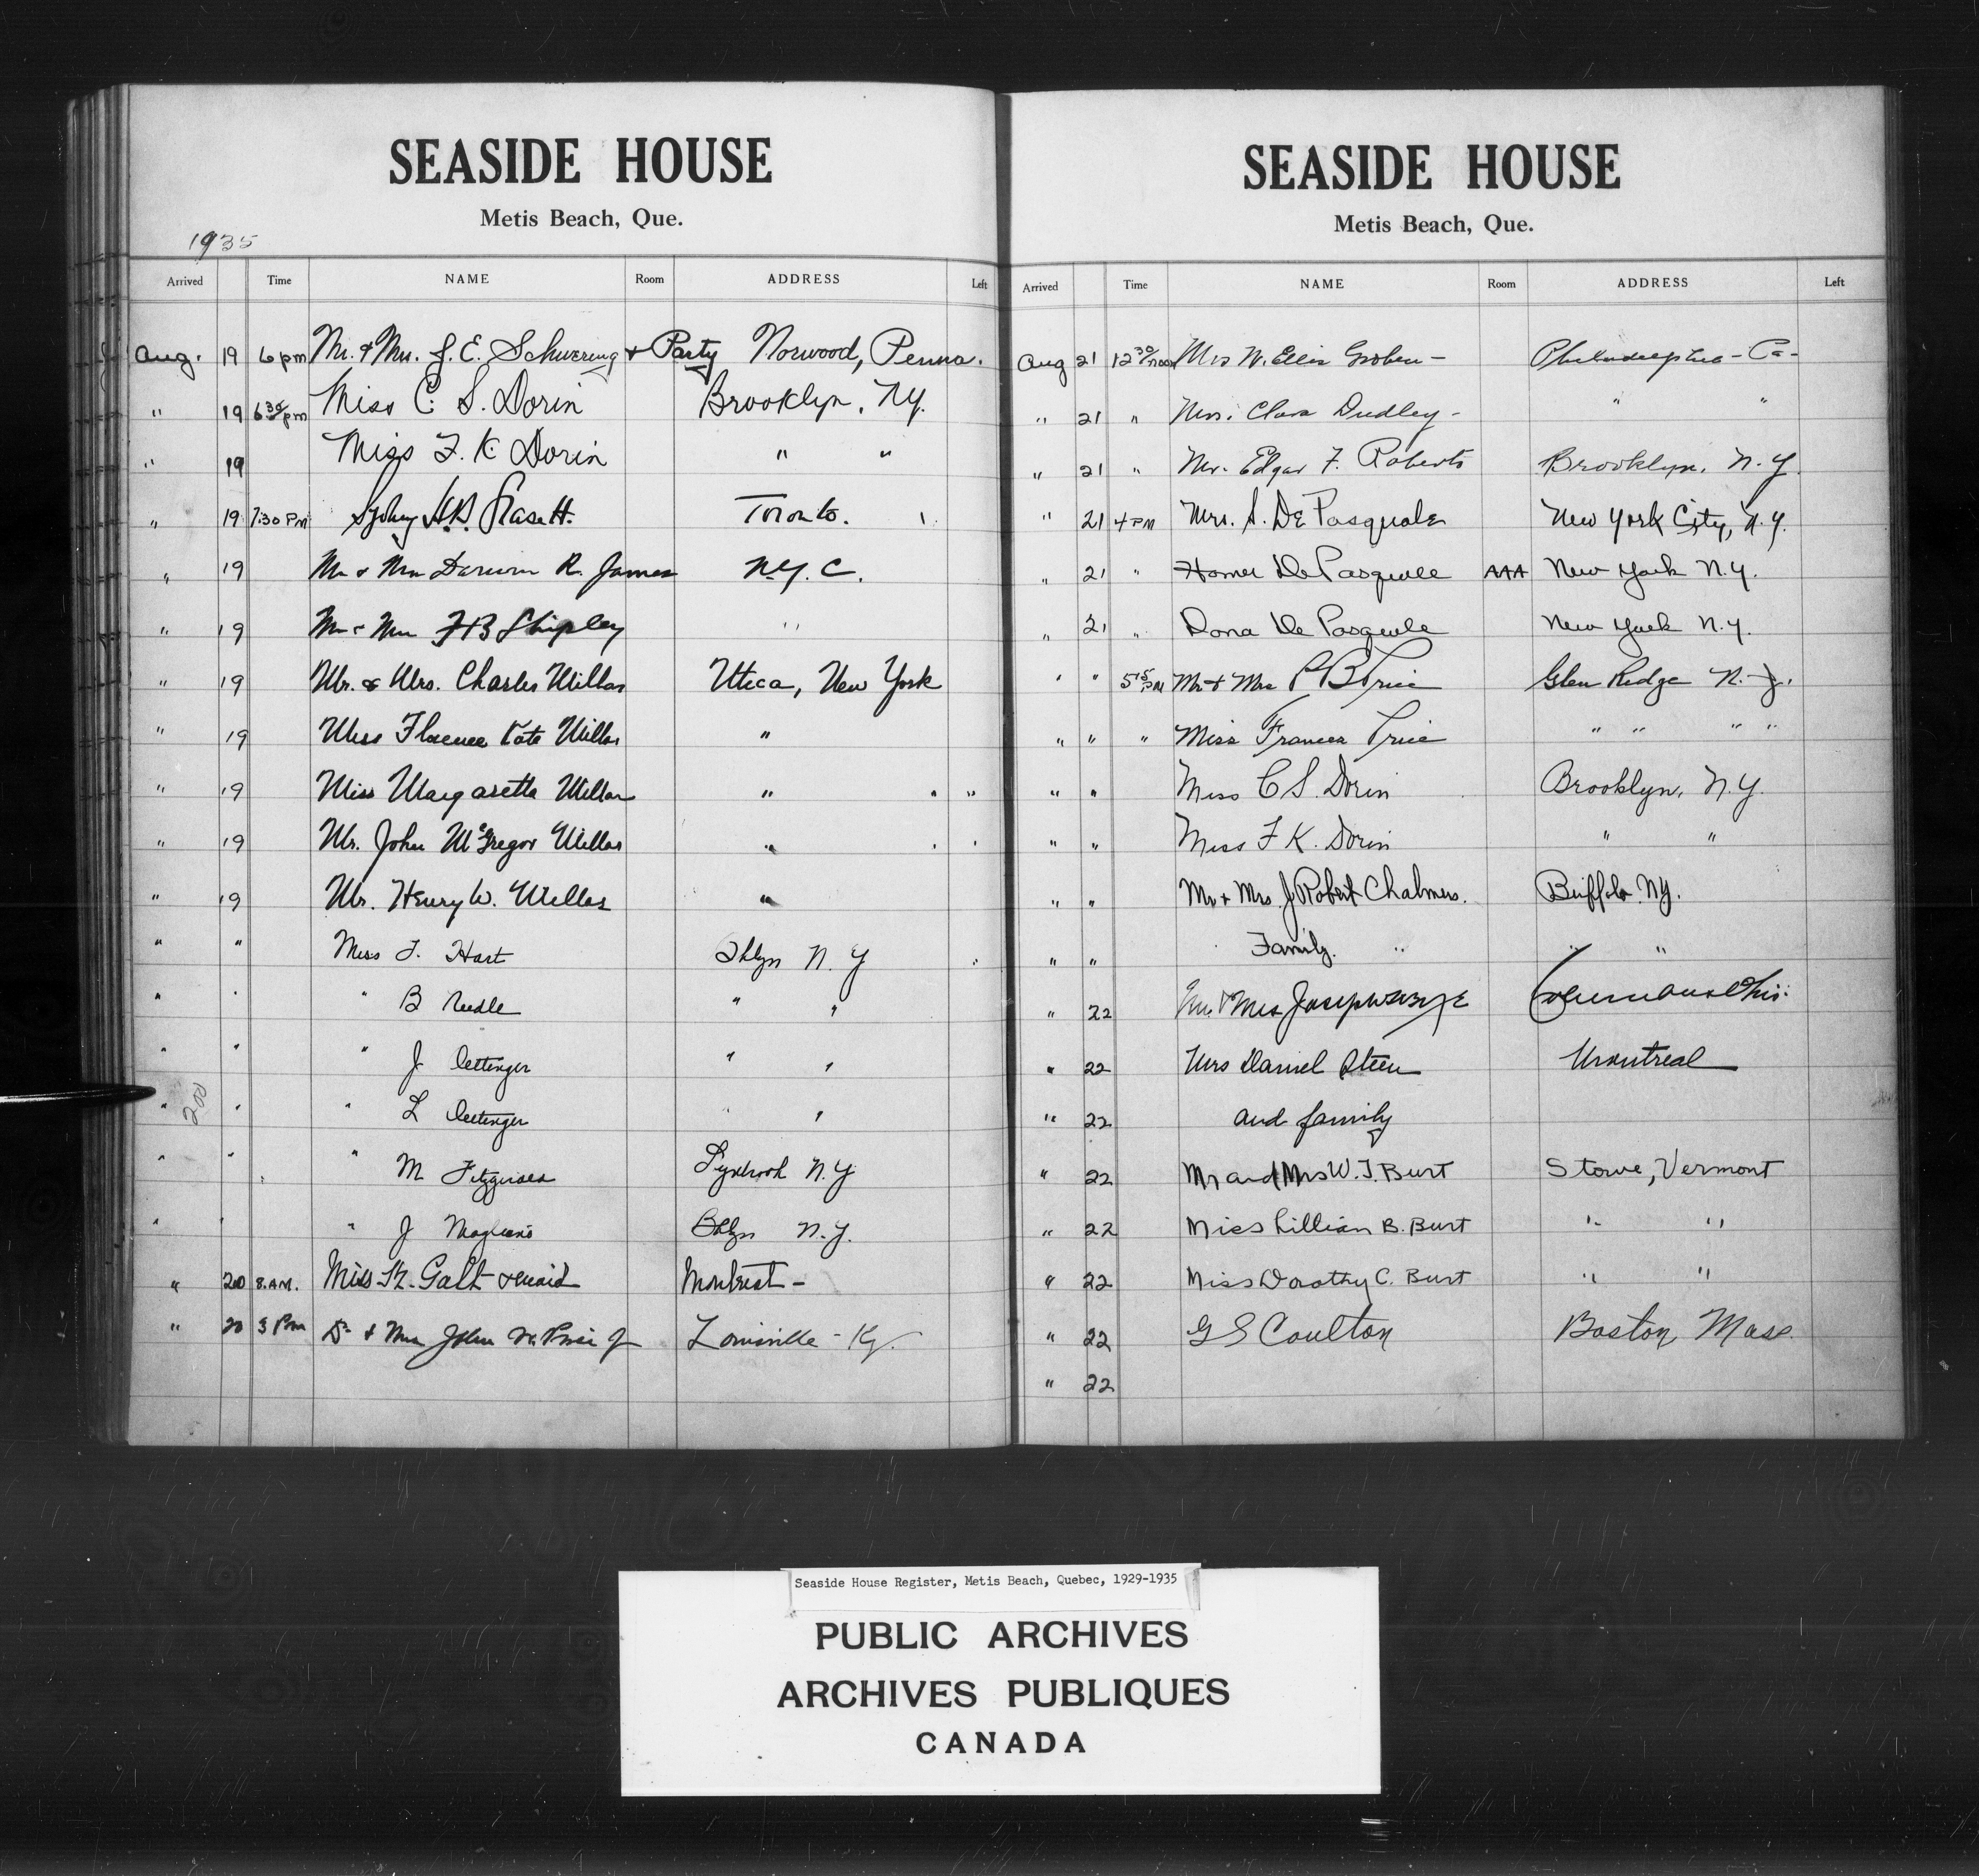 SEASIDE HOUSE
Metis Beach, Que.
1935
Arrived Time NAME Room ADDRESS Left
Aug. 19 6 pm Mr. & Mrs. J. E. Schwering & Party Norwood, Penna.
" 19 6 30 pm Miss C. S. Dorin Brooklyn, N.Y.
" 19 Miss F. K. Dorin " "
" 19 7:30 PM Toronto.
" 19 Mr & Mrs Darwin R. James N.Y. C.
" 19 Mr & Mrs F B Shipley "
" 19 Mr. & Mrs. Charles Millar Utica, New York
" 19 Miss Florence Kate Millar "
" 19 Miss Margaretta Millar "
" 19 Mr. John McGregor Millar "
" 19 Mr. Henry W. Millar "
" " Miss F. Hart Bklyn N. Y
" " " B " "
" " " J Oettinger " "
200
" " " L Oettinger " "
" " " M Fitzgerald Lynbrook N. Y
" " " J Bklyn N. Y.
" 20 8 A.M. Miss Galt & maid Montreal -
" 20 3 Pm Dr & Mrs John Price Jr Louisville - Ky.
SEASIDE HOUSE
Metis Beach, Que.
Arrived Time NAME Room ADDRESS Left
Aug 21 12 30 noon Mrs W. Ellis Groben - Philadelphia - Pa -
" 21 " Mrs. Clara Dudley - " "
" 21 " Mr. Edgar F. Roberts Brooklyn, N. Y.
" 21 4 PM Mrs. S. De Pasquale New York City, N.Y.
" 21 " Homer De Pasquale AAA New York N.Y.
" 21 " Dona De Pasquale New York N.Y.
" " 5 15 PM Mr & Mrs P B Price Glen Ridge N. J.
" " " Miss Frances Price " " " "
" " Miss C S. Dorin Brooklyn, N.Y.
" " Miss F K. Dorin " "
" " Mr & Mrs. J Robert Chalmers. Buffalo. NY.
" " Family. " " "
" 22 Mr & Mrs Joseph
" 22 Mrs Daniel Steen Montreal
" 22 and family
" 22 Mr and Mrs W. J. Burt Stowe, Vermont
" 22 Miss Lillian B. Burt " "
" 22 Miss Dorothy C. Burt " "
" 22 G S Coulton Boston, Mass.
" 22
Seaside House Register, Metis Beach, Quebec, 1929-1935
PUBLIC ARCHIVES
ARCHIVES PUBLIQUES
CANADA